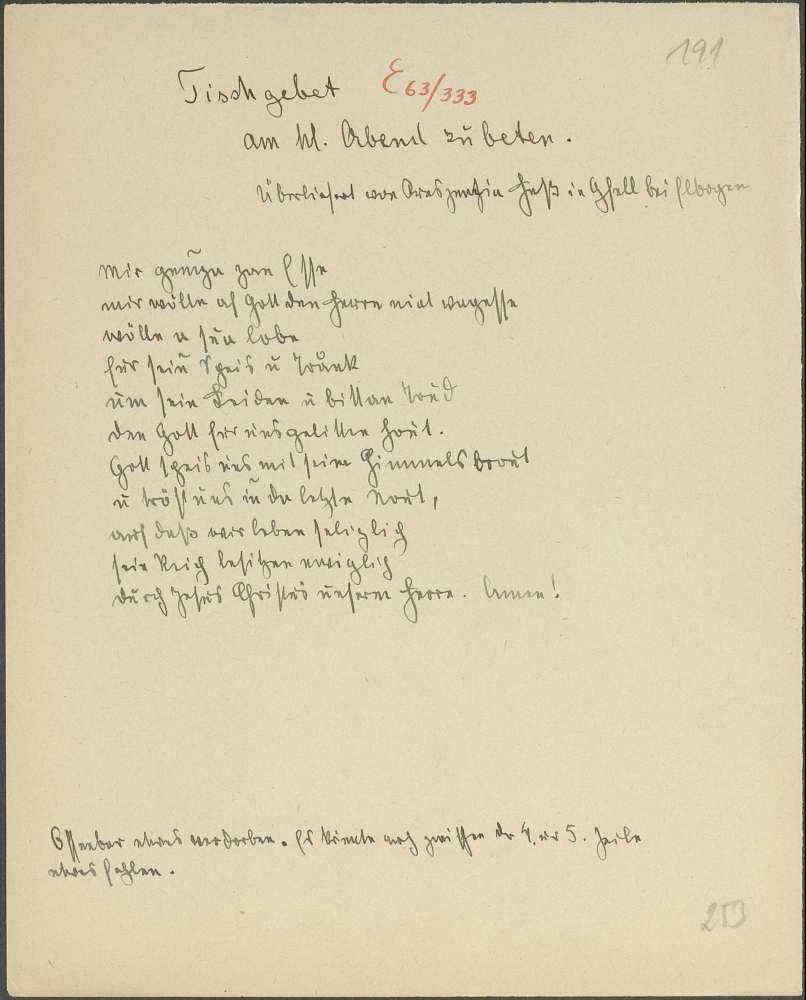 191
Tischgebet E 63/333
am hl. Abend zu beten.
Überliefert von Kreszenzia Heß in Gfell bei Elbogen
mir genga zan Esse
mir wölln af Gott den Herrn niat vagesse
wölln n süa lobn
für sein Speis u Trånk
um sein Leiden u bittan Toud
den Gott für uns gelitten hout.
Gott speis uns mit sein Himmelsbrout
u tröst uns in da letztn Nout,
auf daß wir leben seliglich
sein Reich besitzen ewiglich
durch Jesus Christus unseren Herrn. Amen!
Offenbar etwas verdorben. Es könnte auch zwischen der 4. u 5. Zeile
etwas fehlen.
253